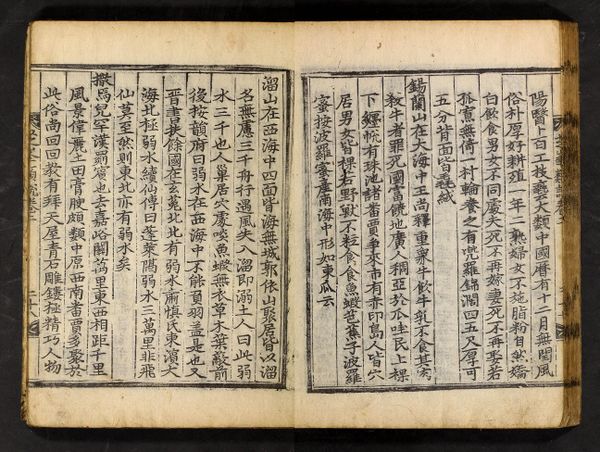 陽醫卜百工技藝大類中國曆有十二月無閏風
俗朴厚好耕殖一年二熟婦女不施脂粉自然嬌
白飮食男女不同處夫死不再嫁妻死不再娶若
孤寡無倚一村輪養之有兜羅錦闊四五尺厚可
五分背面皆毳絨
錫蘭山在大海中王尚釋重象牛飮牛乳不食其肉
殺牛者罪死國富饒地廣人稠亞於爪哇民上裸
下纏帨有珠池諸番賈爭來市有赤卯島人皆穴
居男女皆裸如野獸不粒食食魚蝦芭蕉子波羅
蜜按波羅蜜產南海中形如東瓜云
溜山在西海中四面皆海無城郭依山聚居皆以溜
名無慮三千舟行遇風失入溜即溺土人曰此弱
水三千也人巢居穴處啖魚蝦無衣草木葉蔽前
後按韻府曰弱水在西海中不能負羽盖是也又
晉書扶餘國在玄菟北北有弱水肅愼氏東濱大
海北極弱水續仙傳曰蓬萊隔弱水三萬里非飛
仙莫至然則東北亦有弱水矣
撒馬兒罕漢罽賓也去嘉峪關萬里東西相距千里
風景偉麗土田膏腴頗類中原西南番賈多聚於
此俗尚回回教有拜天屋青石雕鏤極精巧人物